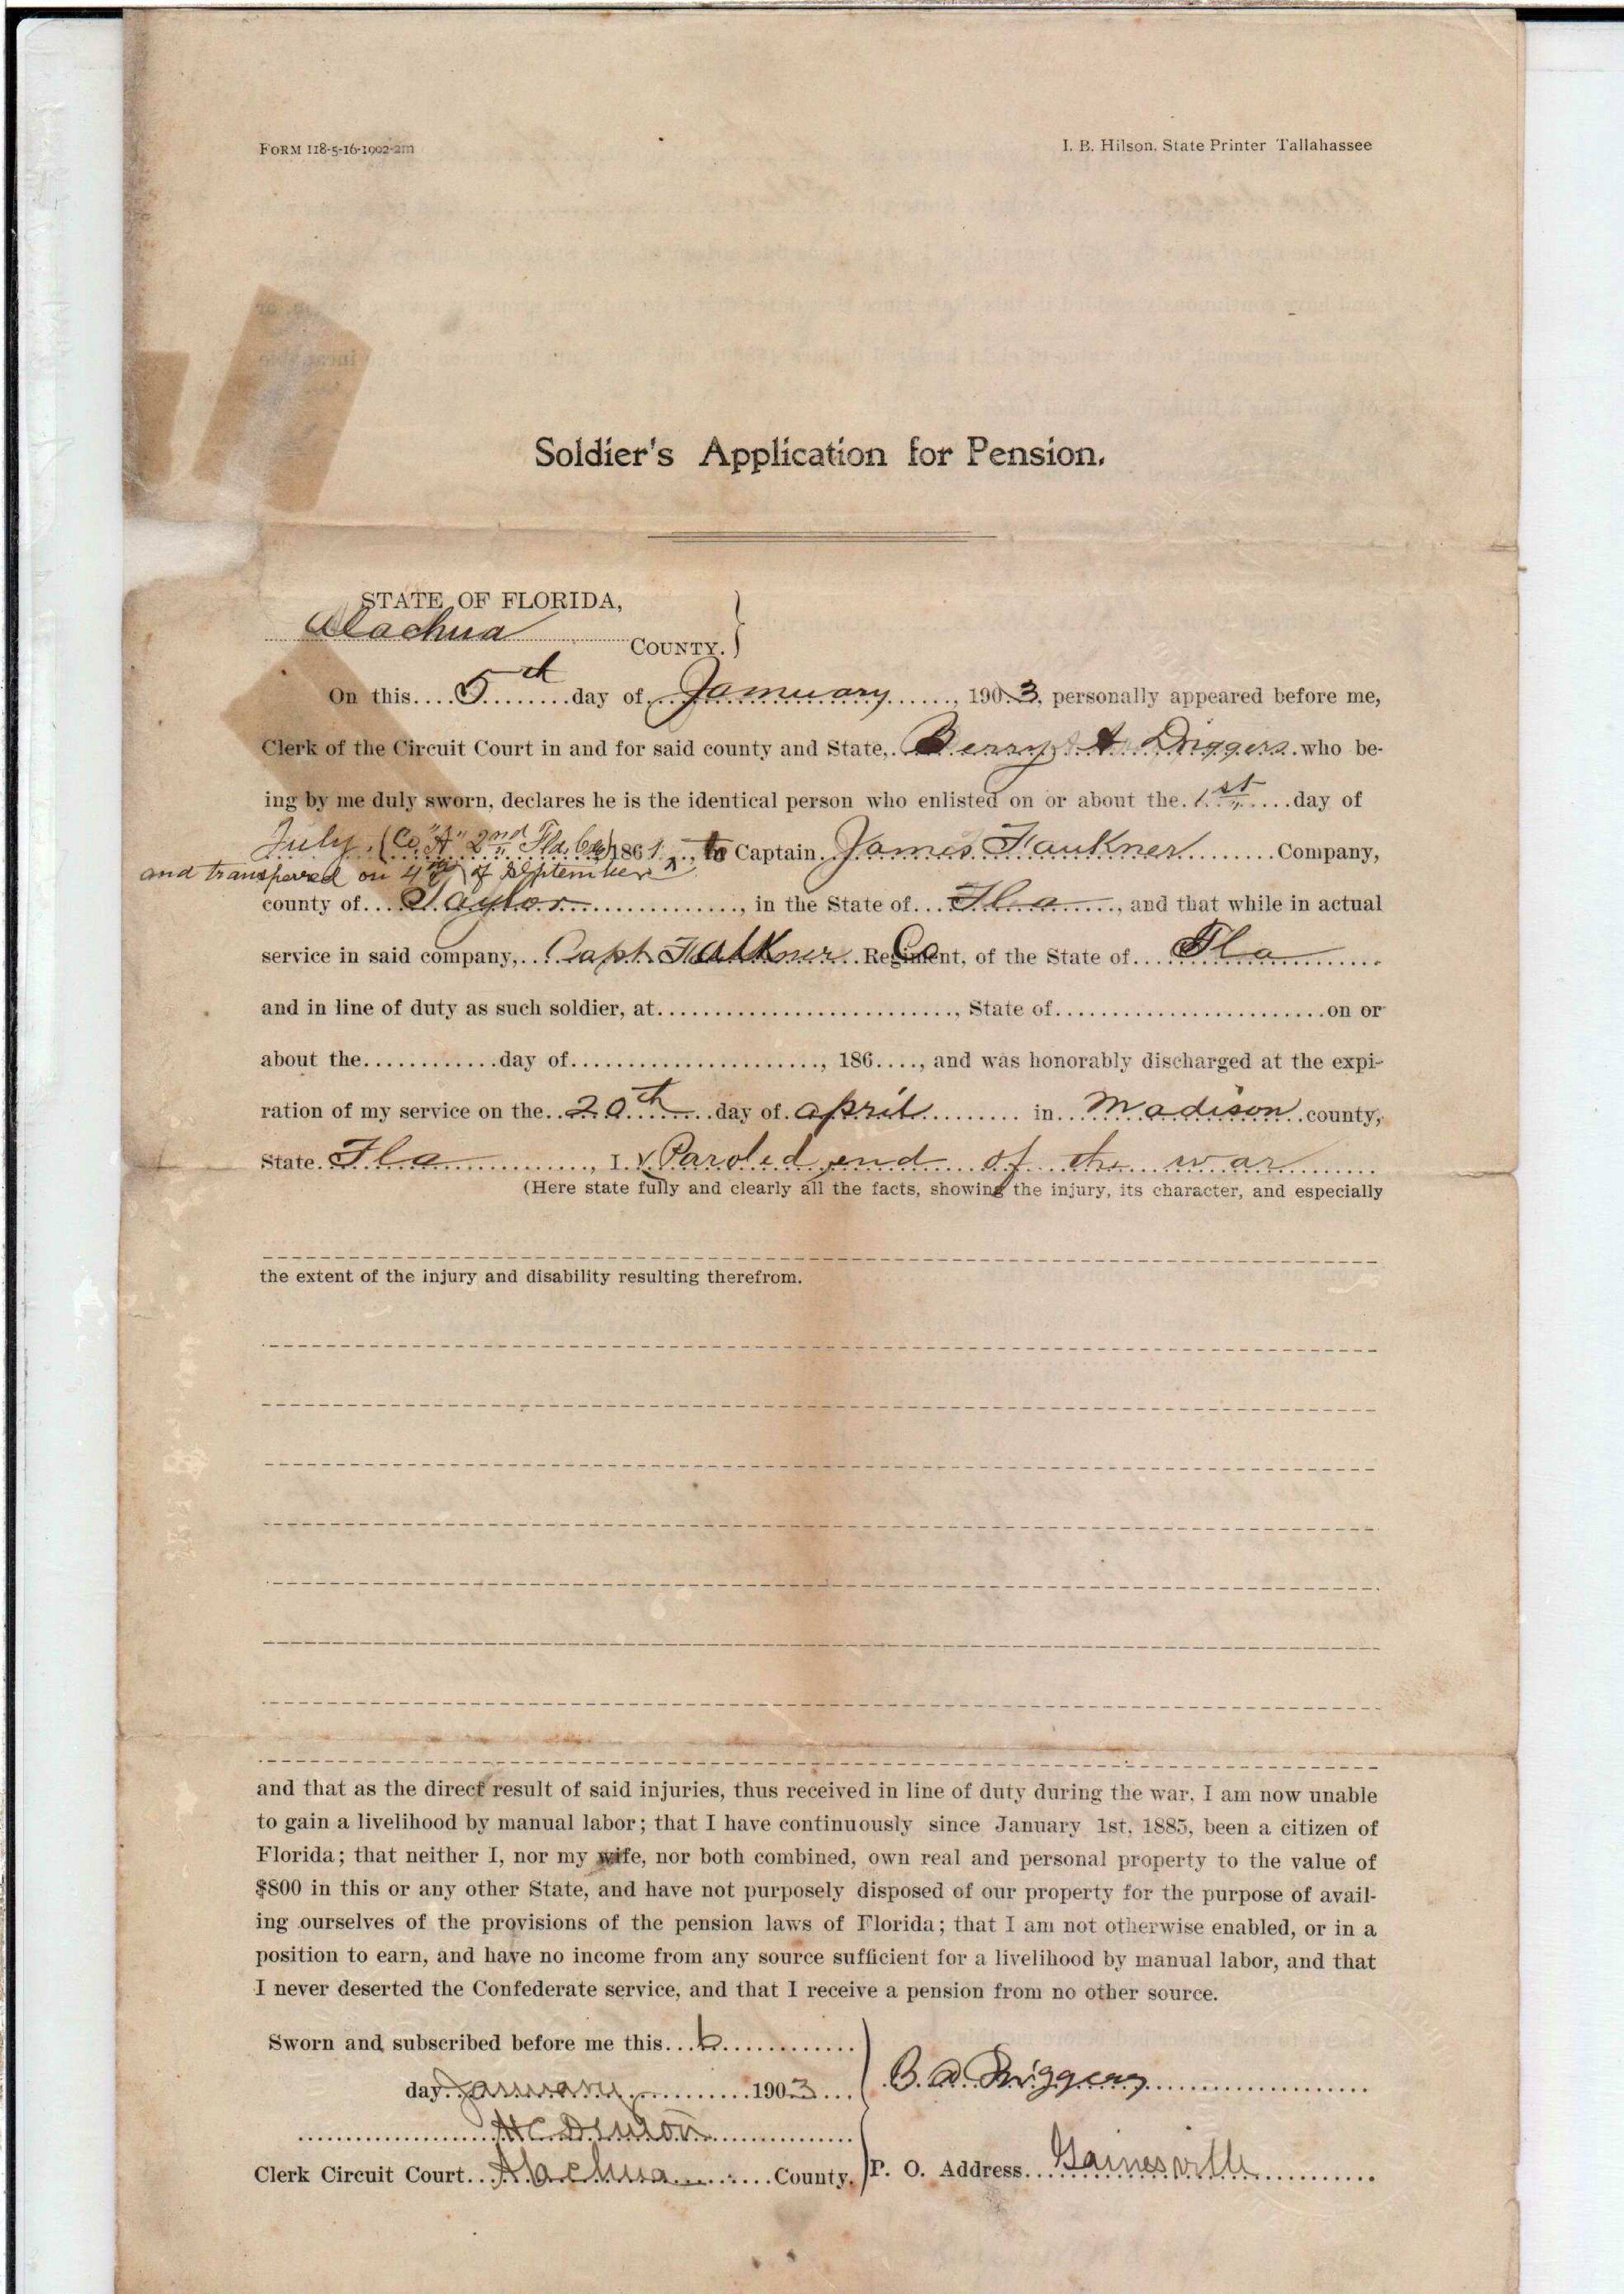 FORM 118-5-16-1902-2m
I. B. Hilson, State Printer Tallahassee
Soldier's Application for Pension.
STATE OF FLORIDA,
Alachua COUNTY.
On this....5th....day of January, 1903, personally appeared before me,
Clerk of the Circuit Court in and for said county and State, Berry A Driggers who be-
ing by me duly sworn, declares he is the identical person who enlisted on or about the 1st day of
July (Co "A" 2nd Fla. ) 1861, to Captain James Faukner Company,
and transferred on 4th of September
county of Taylor, in the State of Fla, and that while in actual
service in said company, Capt. Faulkner Regiment, Co of the State of Fla
and in line of duty as such soldier, at............, State of............on or
about the............day of............, 186...., and was honorably discharged at the expi-
ration of my service on the 20th day of april in Madison county,
State Fla, I Paroled end of the war
(Here state fully and clearly all the facts, showing the injury, its character, and especially
the extent of the injury and disability resulting therefrom.
and that as the direct result of said injuries, thus received in line of duty during the war, I am now unable
to gain a livelihood by manual labor; that I have continuously since January 1st, 1885, been a citizen of
Florida; that neither I, nor my wife, nor both combined, own real and personal property to the value of
$800 in this or any other State, and have not purposely disposed of our property for the purpose of avail-
ing ourselves of the provisions of the pension laws of Florida; that I am not otherwise enabled, or in a
position to earn, and have no income from any source sufficient for a livelihood by manual labor, and that
I never deserted the Confederate service, and that I receive a pension from no other source.
Sworn and subscribed before me this...6............
day January 1903
B. A. Driggers
H C Denton
Clerk Circuit Court Alachua County.
P. O. Address Gainesville